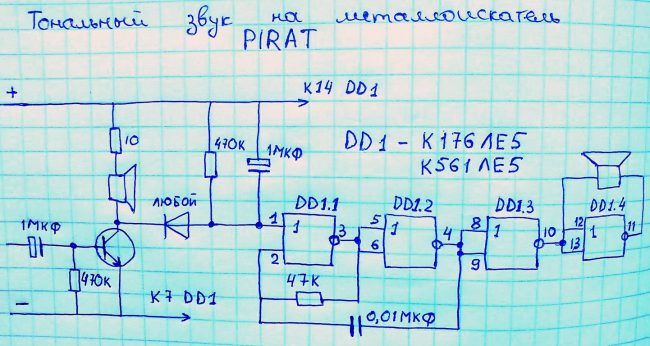 Тональный звук на металлоискатель
PIRAT
+
К14 DD1
10
470К
1МКФ
DD1 - К176ЛЕ5
К561ЛЕ5
ЛЮБОЙ
DD1.1
DD1.2
DD1.3
DD1.4
1МКФ
1
1
3
2
5
1
4
6
8
1
10
9
12
1
11
13
470К
47К
0,01МКФ
−
К7 DD1